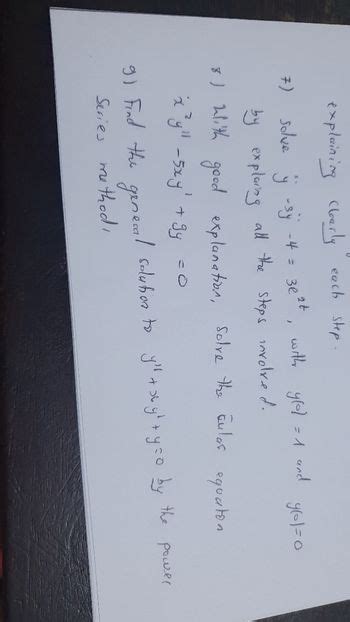 explaining clearly each step.
7) Solve ÿ - 3ẏ - 4 = 3e²ᵗ, with y(0) = 1 and y(0) = 0
by explaing all the steps involved.
8) With good explanation, Solve the Euler equation
x²y'' - 5xy' + 9y = 0
9) Find the general solution to y'' + xy' + y = 0 by the power
Series method.